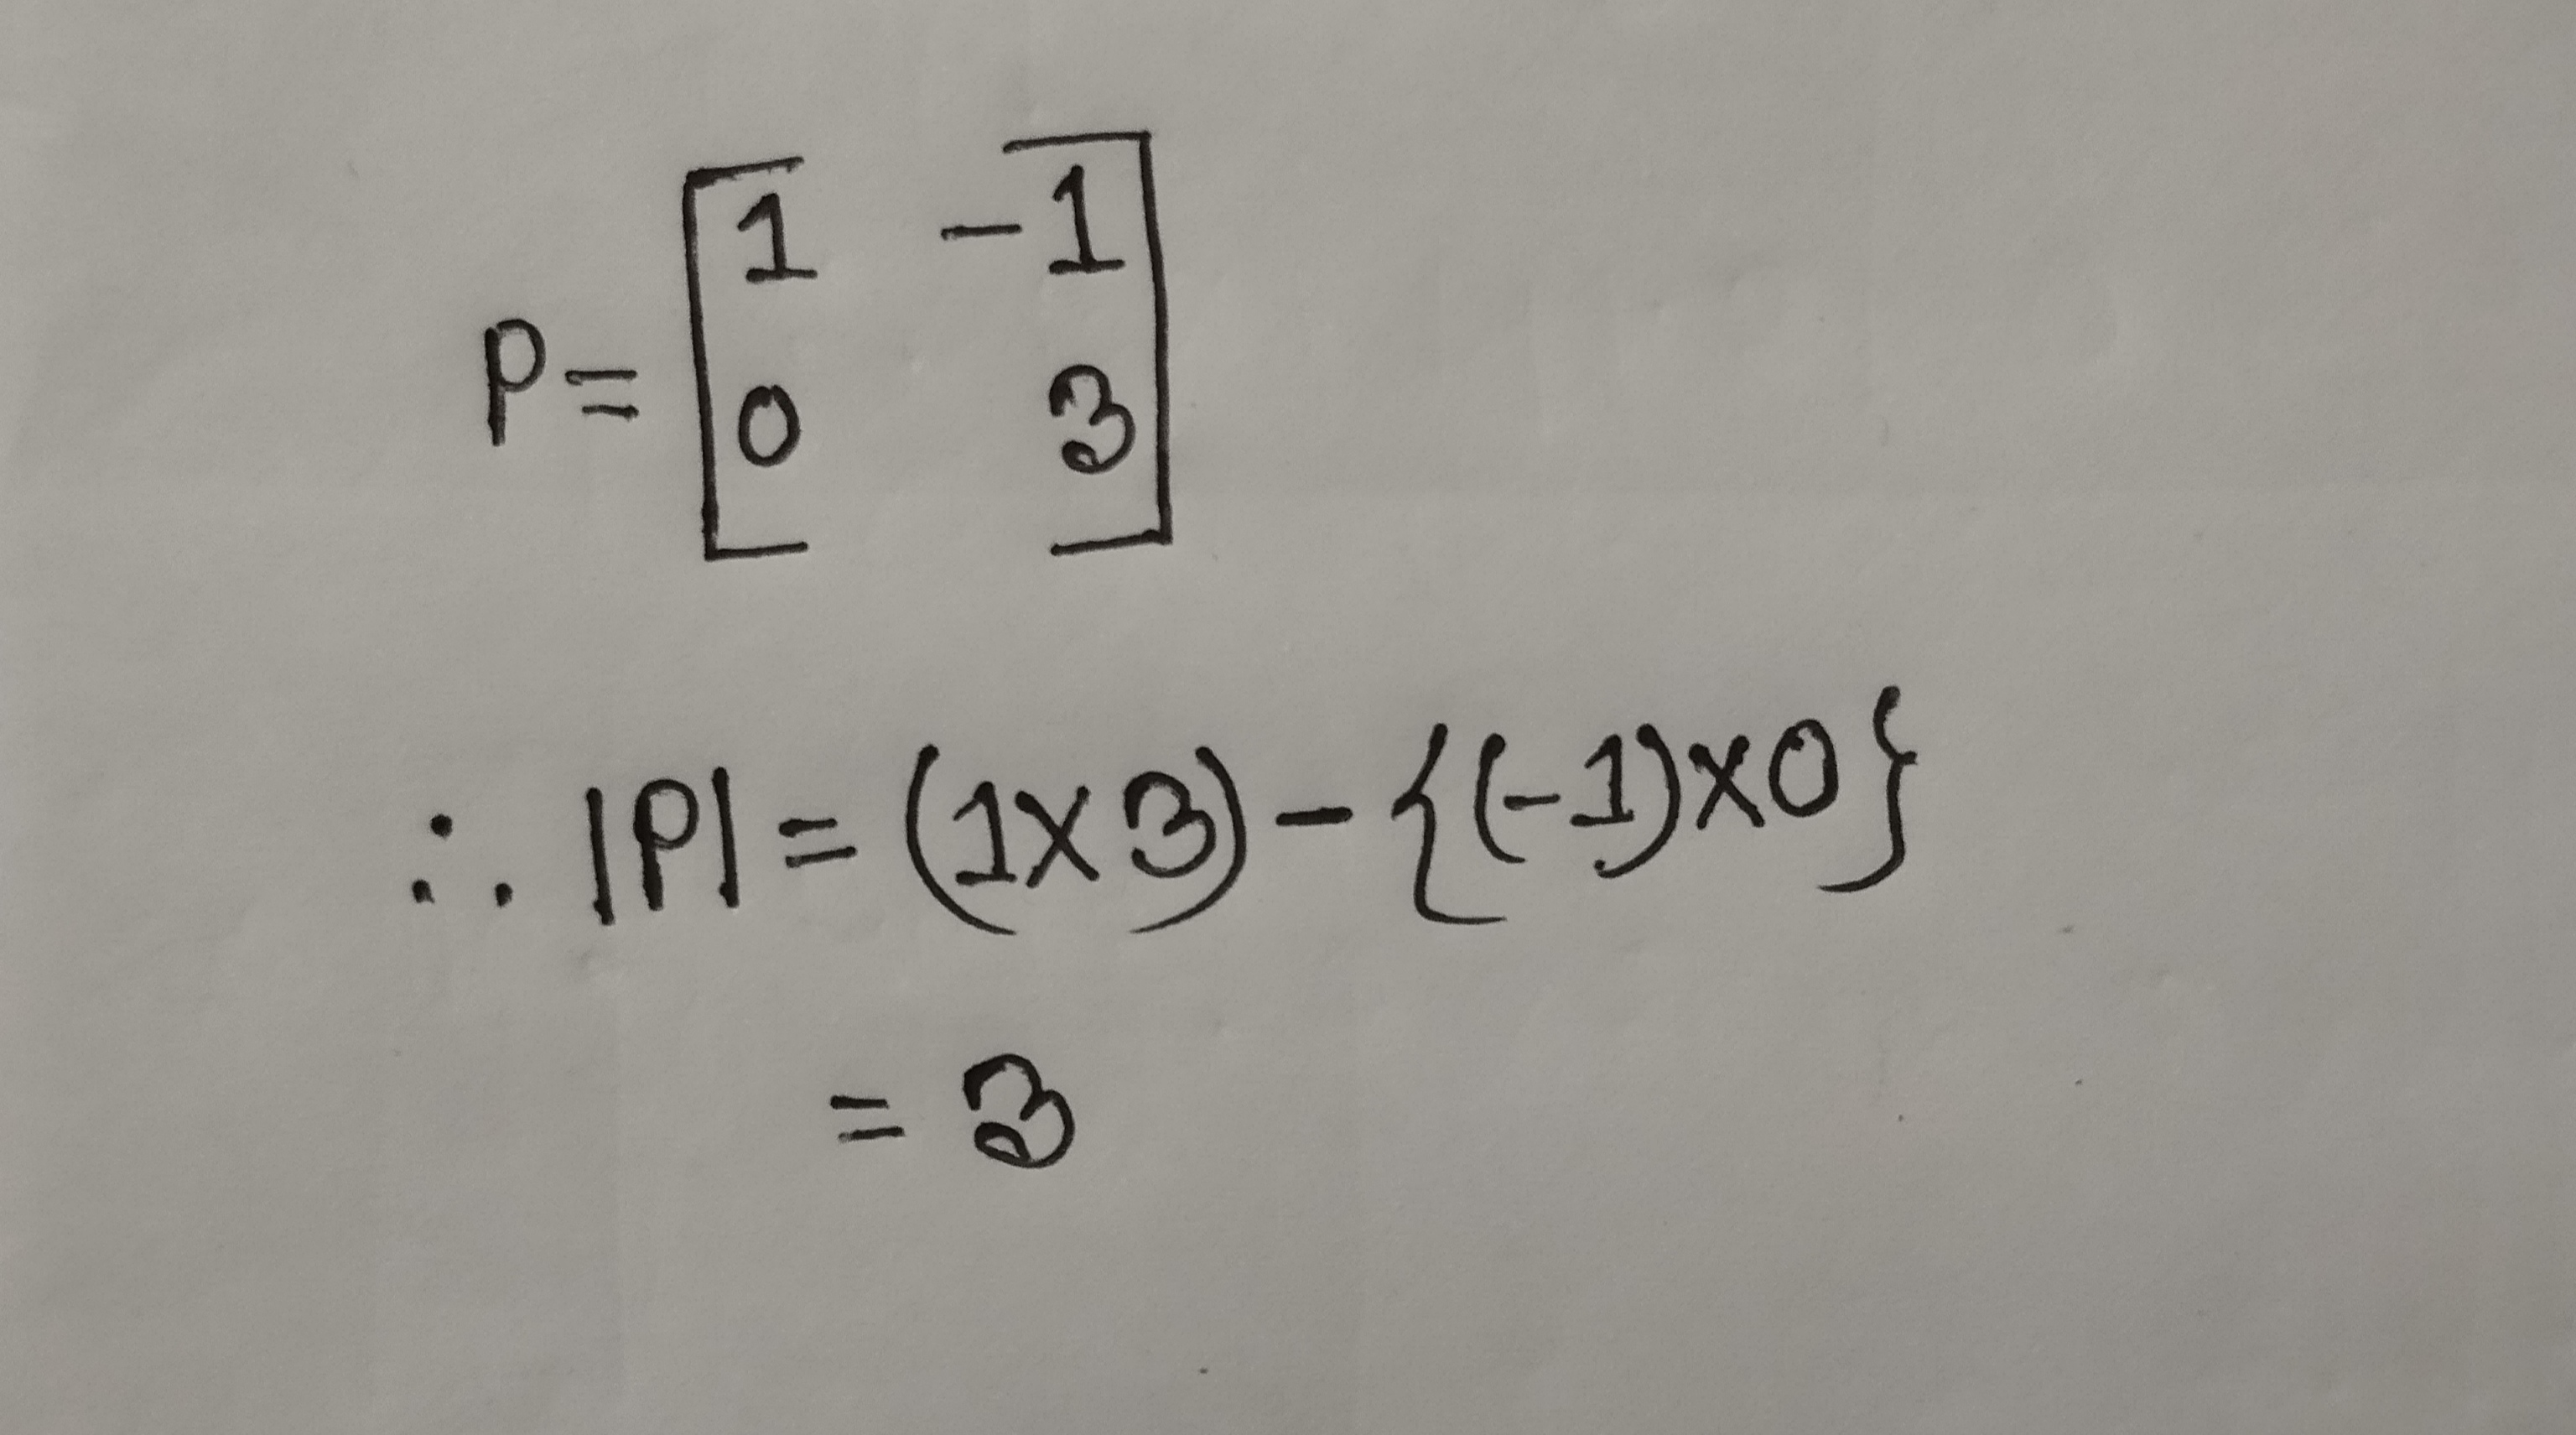 P = [1 -1
0 3]
∴ |P| = (1×3) - {(-1)×0}
= 3